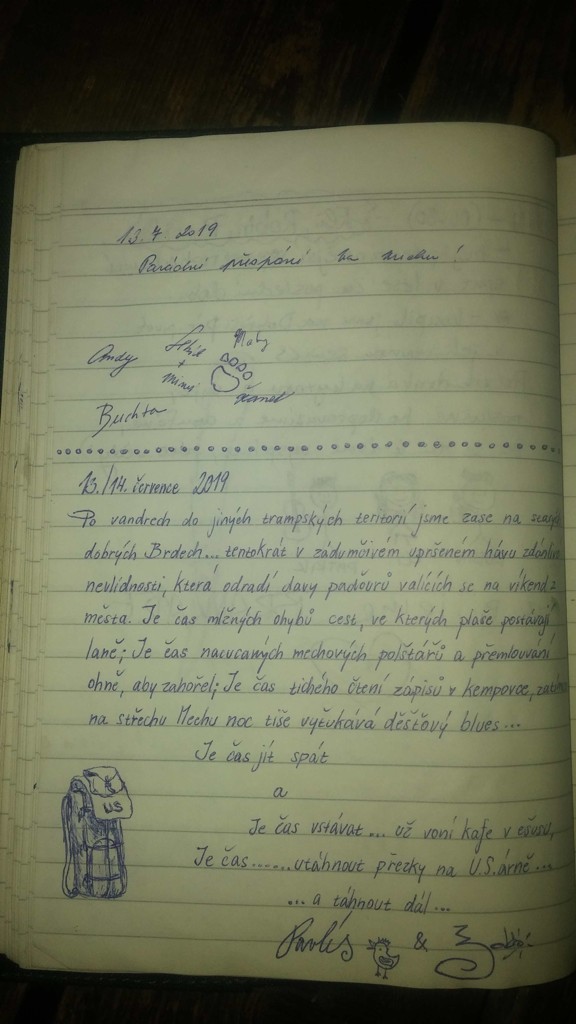 13. 7. 2019
Parádní přespání na mechu!
Andy
+
Buchta
13./14. července 2019
Po vandrech do jiných trampských teritorií jsme zase na
dobrých Brdech... tentokrát v zádumčivém upršeném hávu
nevlídnosti, která odradí davy paďourů valících se na víkend z
města. Je čas mlžných ohybů cest, ve kterých plaše postávají
laně; Je čas nacucaných mechových polštářů a přemlouvání
ohně, aby zahořel; Je čas tichého čtení zápisů v kempovce,
na střechu Mechu noc tiše vyťukává déšťový blues...
Je čas jít spát
a
Je čas vstávat... už voní kafe v ešusu,
Je čas...... utáhnout přezky na U.S.árně...
... a táhnout dál...
US
Pavlís &